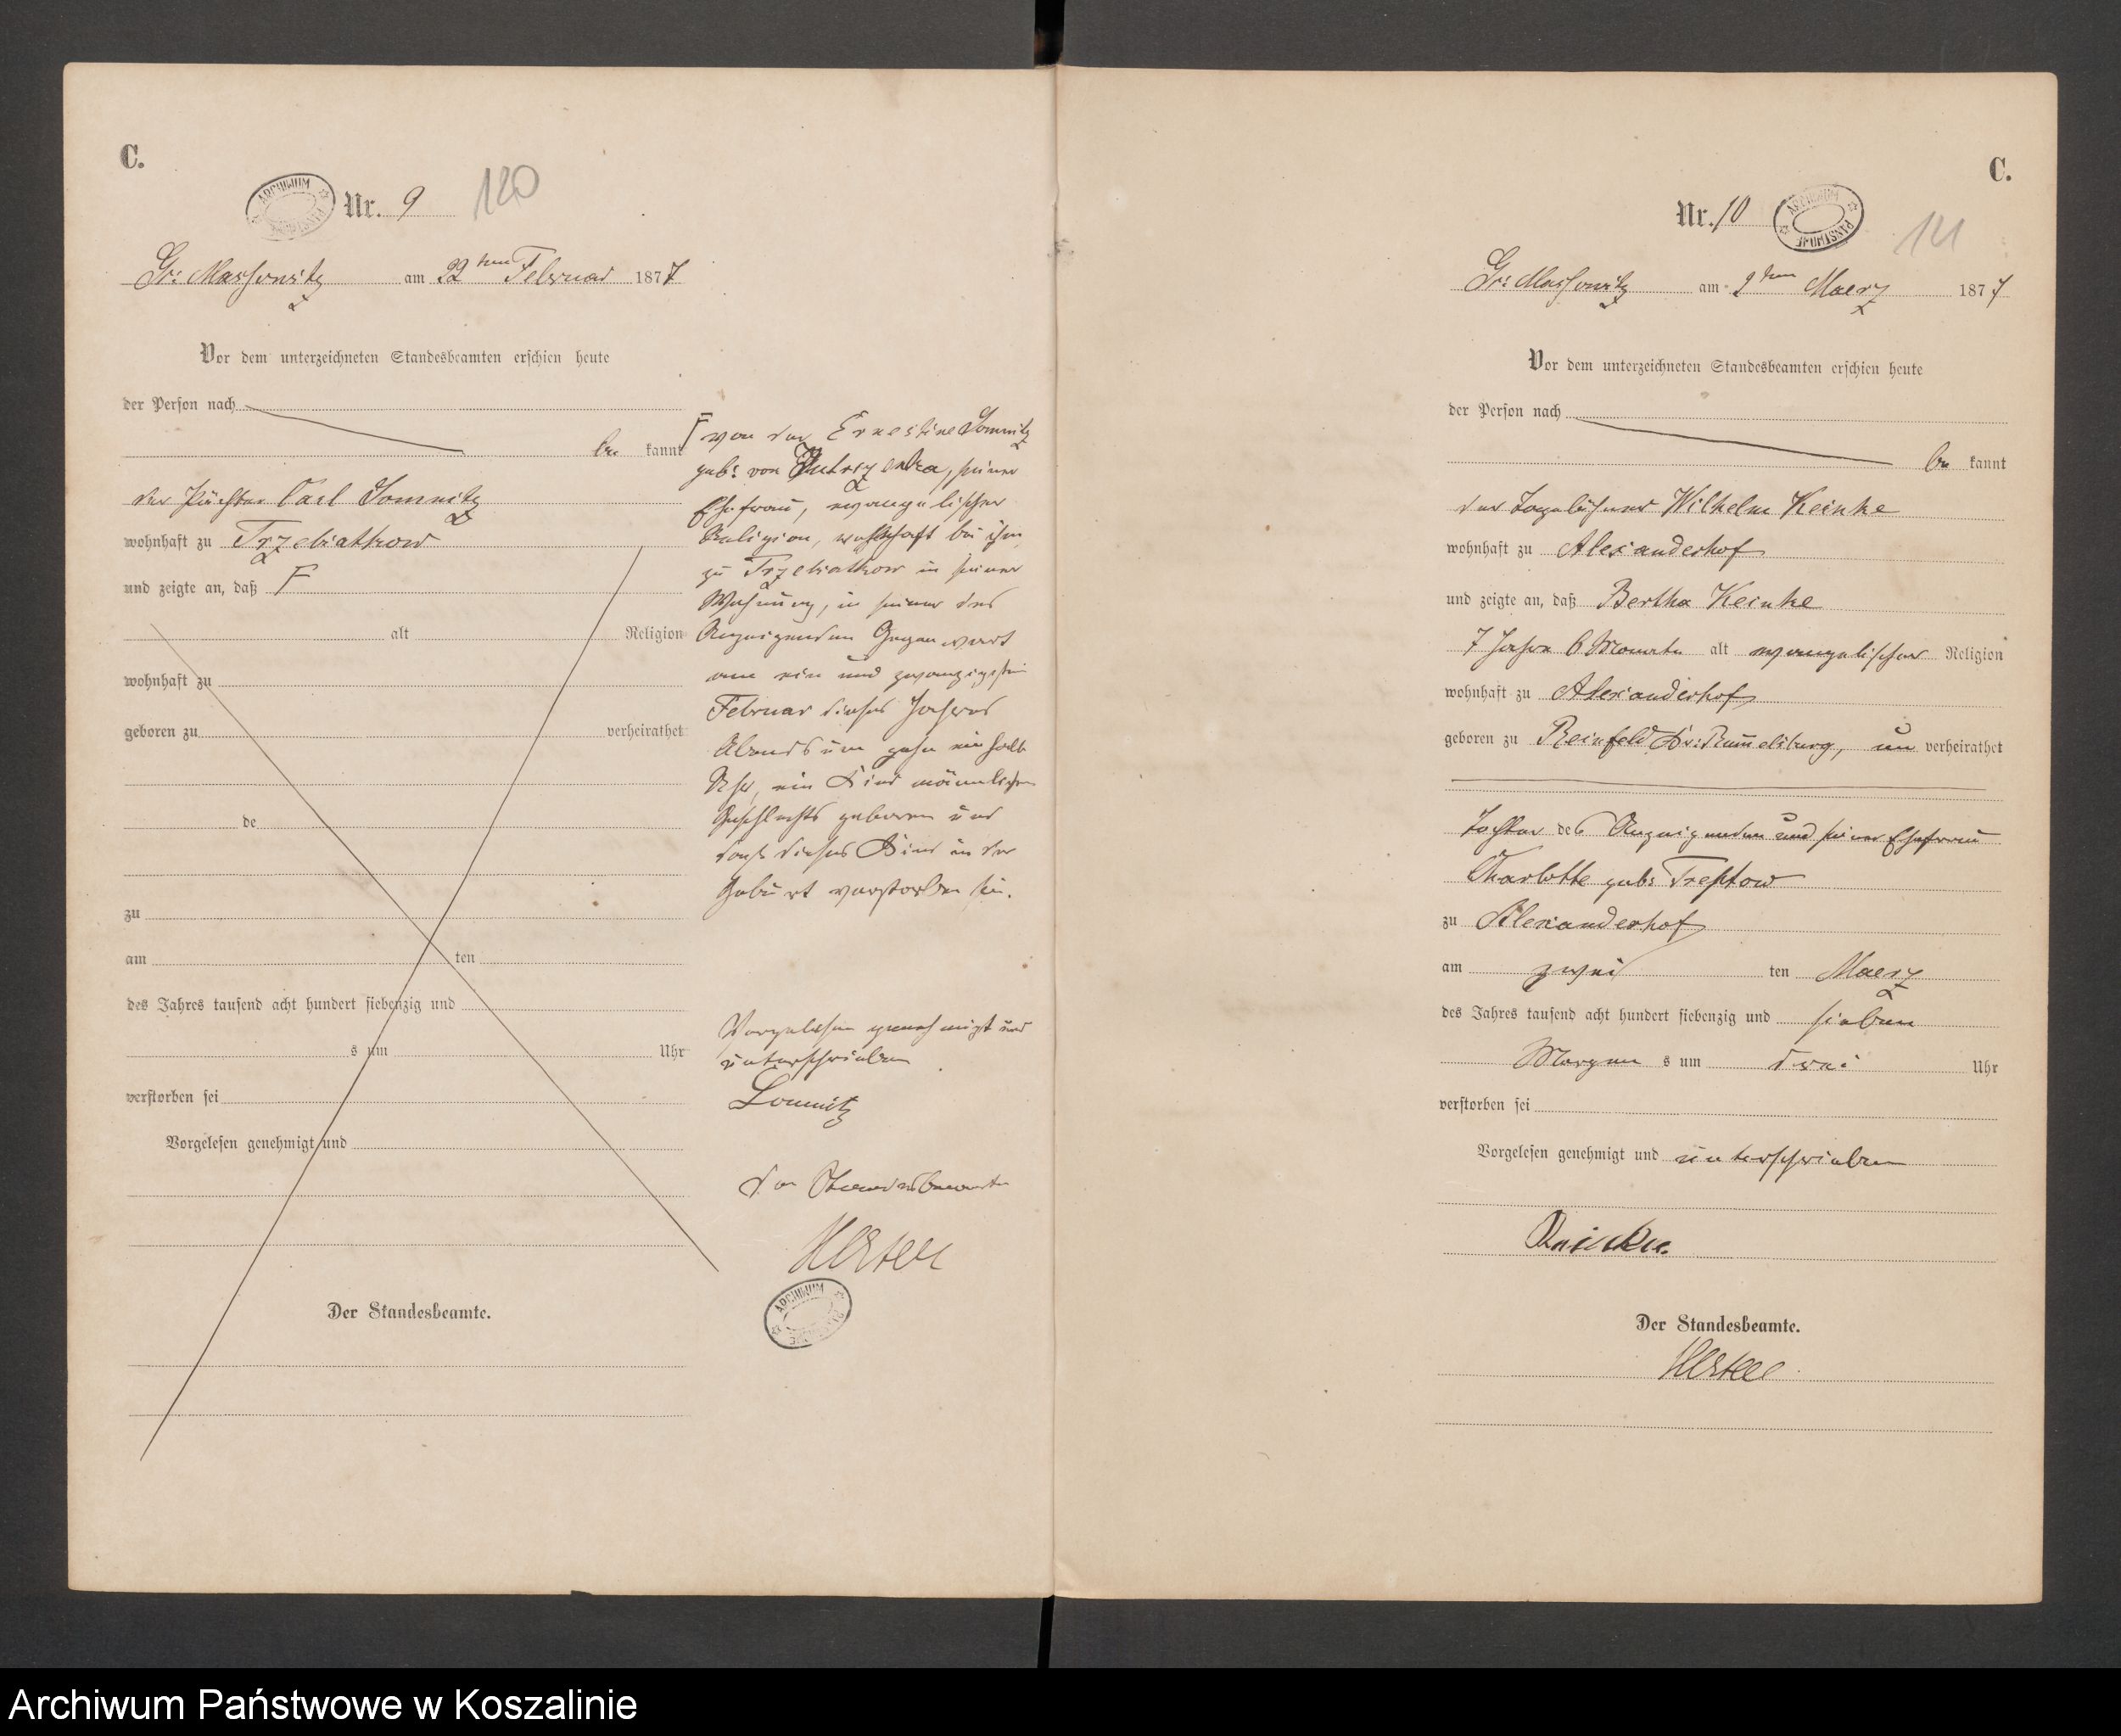 C.
ARCHIWUM PAŃSTWOWE
Nr. 9
120
Gr: Massowitz am 22ten Februar 1877
Vor dem unterzeichneten Standesbeamten erschien heute
der Person nach
be kannt
der Pächter Carl Somnitz
wohnhaft zu Trzebiatkow
und zeigte an, daß F
alt Religion
wohnhaft zu
geboren zu verheirathet
de
zu
am ten
des Jahres tausend acht hundert siebenzig und
s um Uhr
verstorben sei
Vorgelesen genehmigt und
Der Standesbeamte.
F von der Ernestine Somnitz
geb: von , seiner
Ehefrau, evangelischer
Religion, wohnhaft bei ihm
zu Trzebiatkow in seiner
Wohnung, in seiner des
Anzeigenden Gegenwart
am ein und zwanzigsten
Februar dieses Jahres
Abends um zehn ein halb
Uhr, ein Kind männlichen
Geschlechts geboren und
daß dieses Kind in der
Geburt verstorben sei.
Vorgelesen genehmigt und
unterschrieben
Somnitz
der Standesbeamte
ARCHIWUM PAŃSTWOWE
C.
Nr. 10
ARCHIWUM PAŃSTWOWE
Gr: Massowitz am 2ten Maerz 1877
Vor dem unterzeichneten Standesbeamten erschien heute
der Person nach
be kannt
der Tagelöhner Wilhelm Reinke
wohnhaft zu Alexanderhof
und zeigte an, daß Bertha Reinke
7 Jahre 6 Monate alt evangelischer Religion
wohnhaft zu Alexanderhof
geboren zu Reinfeld Kr: Rummelsburg, un verheirathet
Tochter des Anzeigenden und seiner Ehefrau
Charlotte geb: Treptow
zu Alexanderhof
am zwei ten Maerz
des Jahres tausend acht hundert siebenzig und sieben
Morgen s um drei Uhr
verstorben sei
Vorgelesen genehmigt und unterschrieben
Der Standesbeamte.
Archiwum Państwowe w Koszalinie